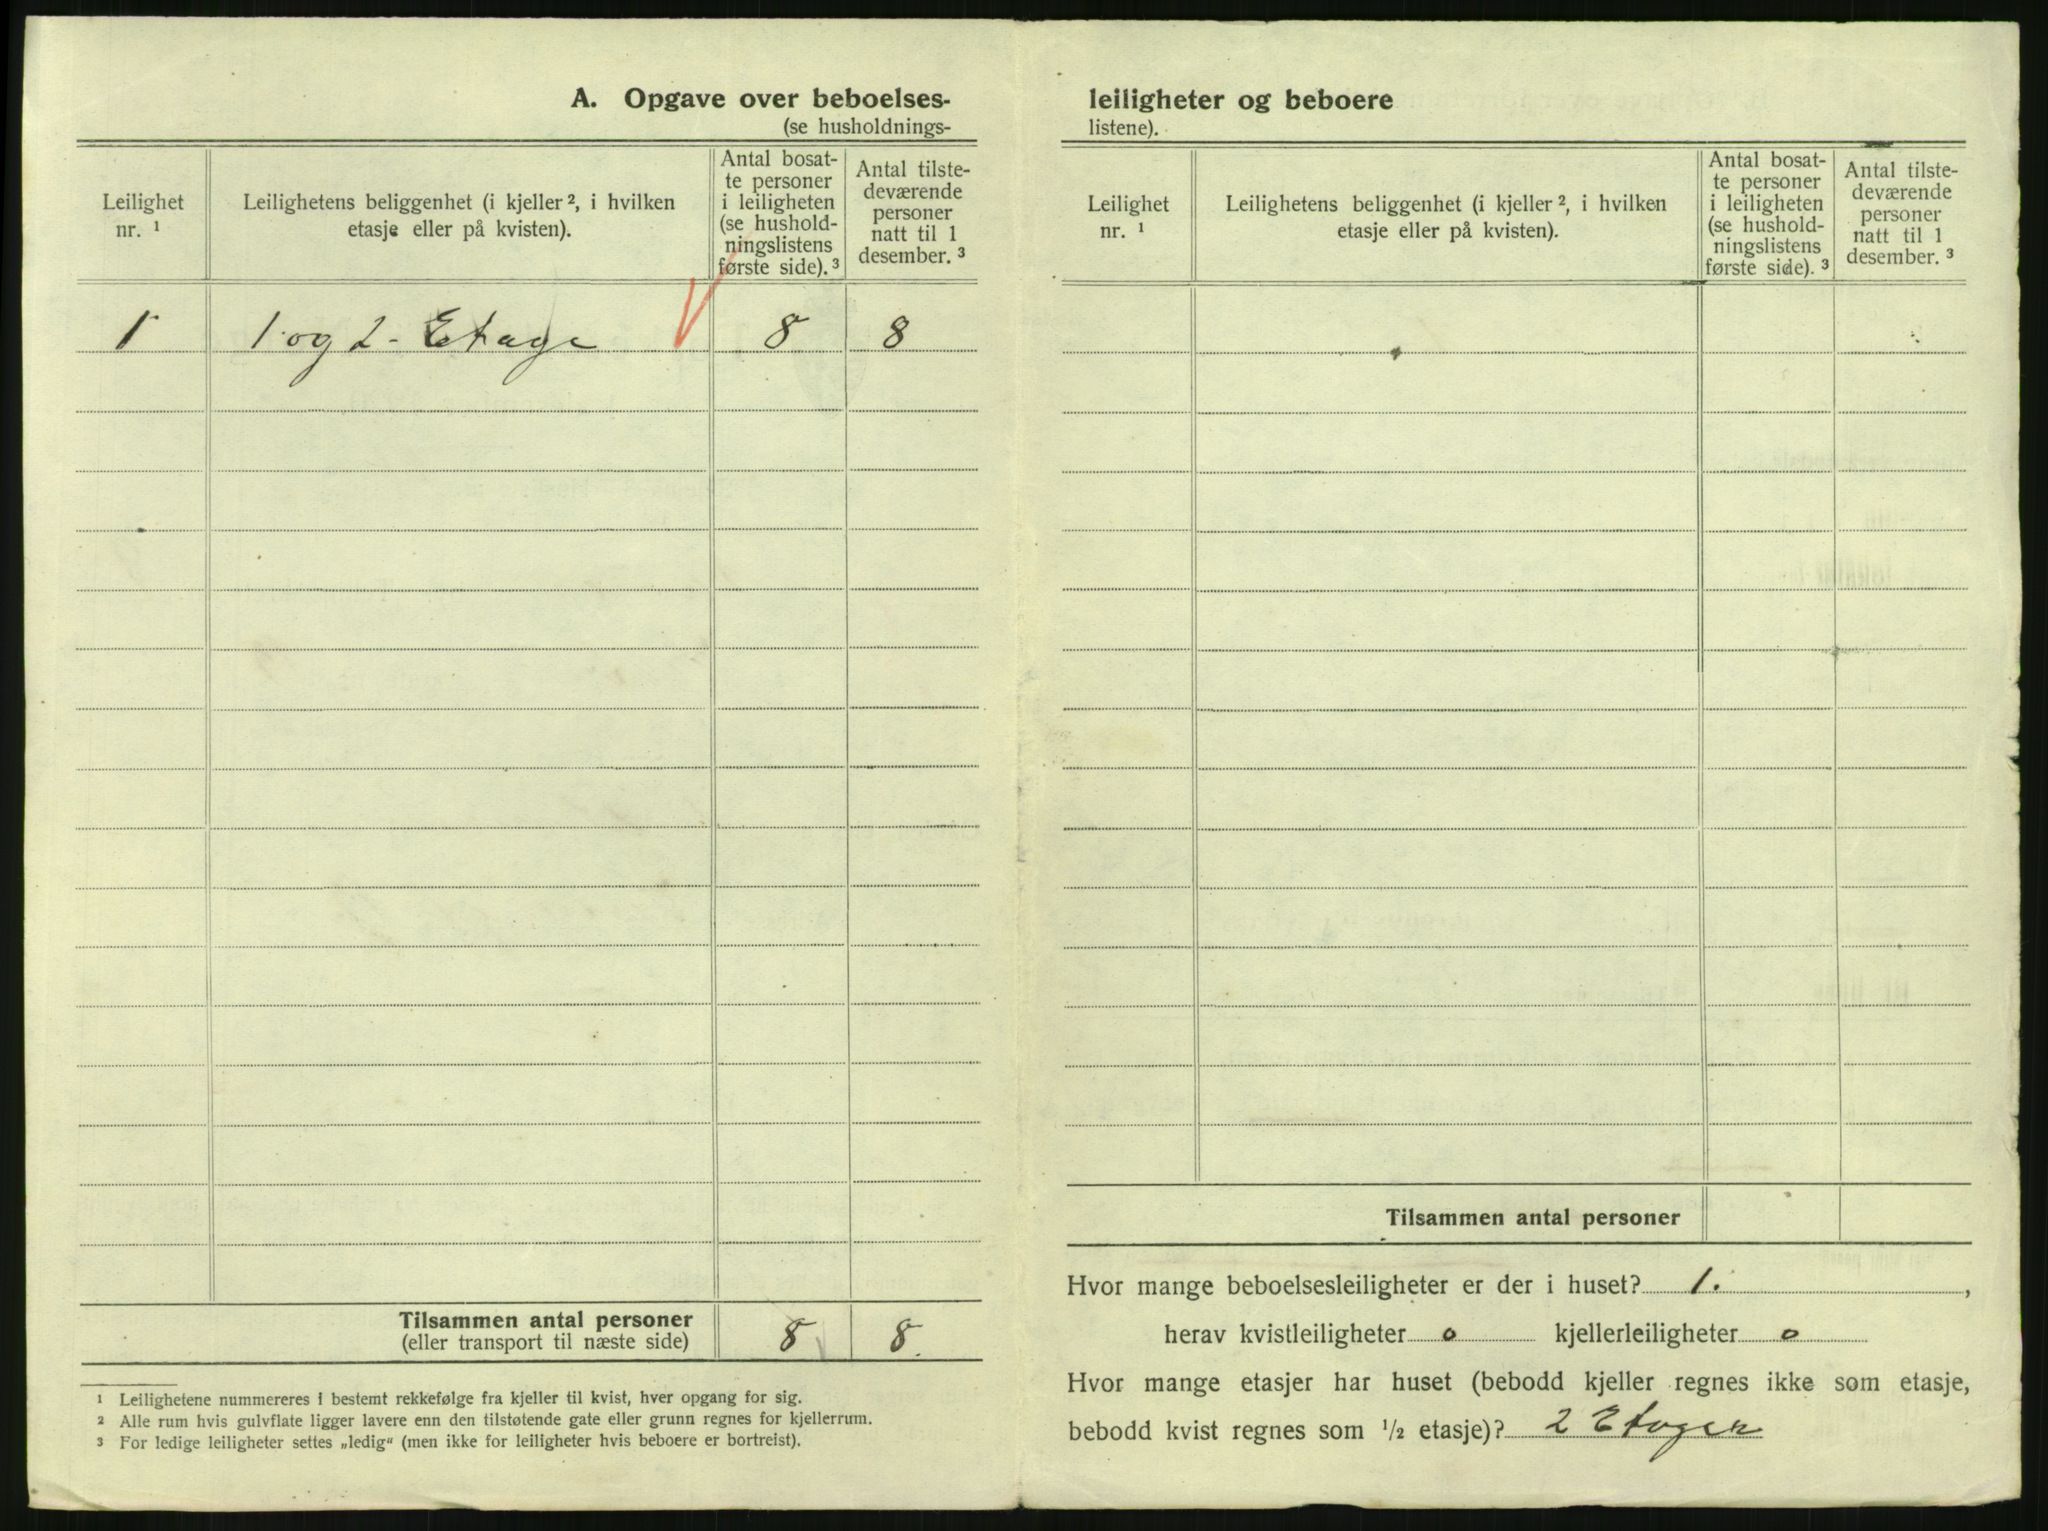 A. Opgave over beboelses-
(se husholdnings-
Leilighet nr. ¹
Leilighetens beliggenhet (i kjeller ², i hvilken
etasje eller på kvisten).
Antal bosat-
te personer
i leiligheten
(se hushold-
ningslistens
første side). ³
Antal tilste-
deværende
personer
natt til 1
desember. ³
1 1 og 2 - Etage 8 8
Tilsammen antal personer
(eller transport til næste side) 8 8.
¹ Leilighetene nummereres i bestemt rekkefølge fra kjeller til kvist, hver opgang for sig.
² Alle rum hvis gulvflate ligger lavere enn den tilstøtende gate eller grunn regnes for kjellerrum.
³ For ledige leiligheter settes „ledig“ (men ikke for leiligheter hvis beboere er bortreist).
leiligheter og beboere
listene).
Leilighet
nr. ¹
Leilighetens beliggenhet (i kjeller ², i hvilken
etasje eller på kvisten).
Antal bosat-
te personer
i leiligheten
(se hushold-
ningslistens
første side). ³
Antal tilste-
deværende
personer
natt til 1
desember. ³
Tilsammen antal personer
Hvor mange beboelsesleiligheter er der i huset? 1. ,
herav kvistleiligheter 0 kjellerleiligheter 0
Hvor mange etasjer har huset (bebodd kjeller regnes ikke som etasje,
bebodd kvist regnes som ½ etasje)? 2 Etager